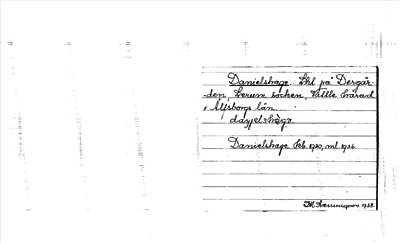 Danielshage. Lht på Dergår-
den, Lerum socken, Vättle härad
Älfsborgs län.
Danielshage Feb. 1930, ml. 1936.
1938.